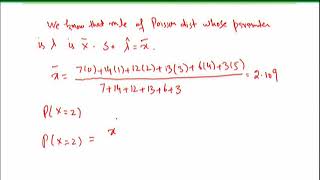 We know that mle of Poisson dist whose parameter
is λ is x̄. So λ̂ = x̄.
x̄ = 7(0)+14(1)+12(2)+13(3)+6(4)+3(5) / 7+14+12+13+6+3 = 2.109
P(X=2)
P(X=2) = x